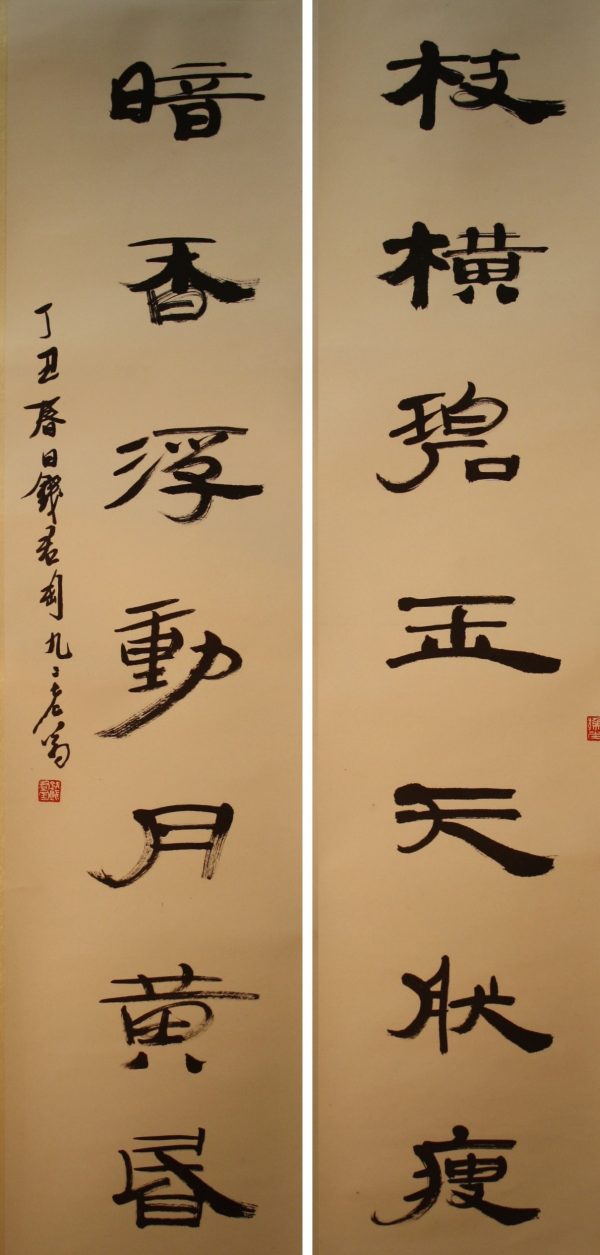 枝橫碧玉天肰瘦
暗香浮動月黃昬
丁丑春日錢君匋九二老翁